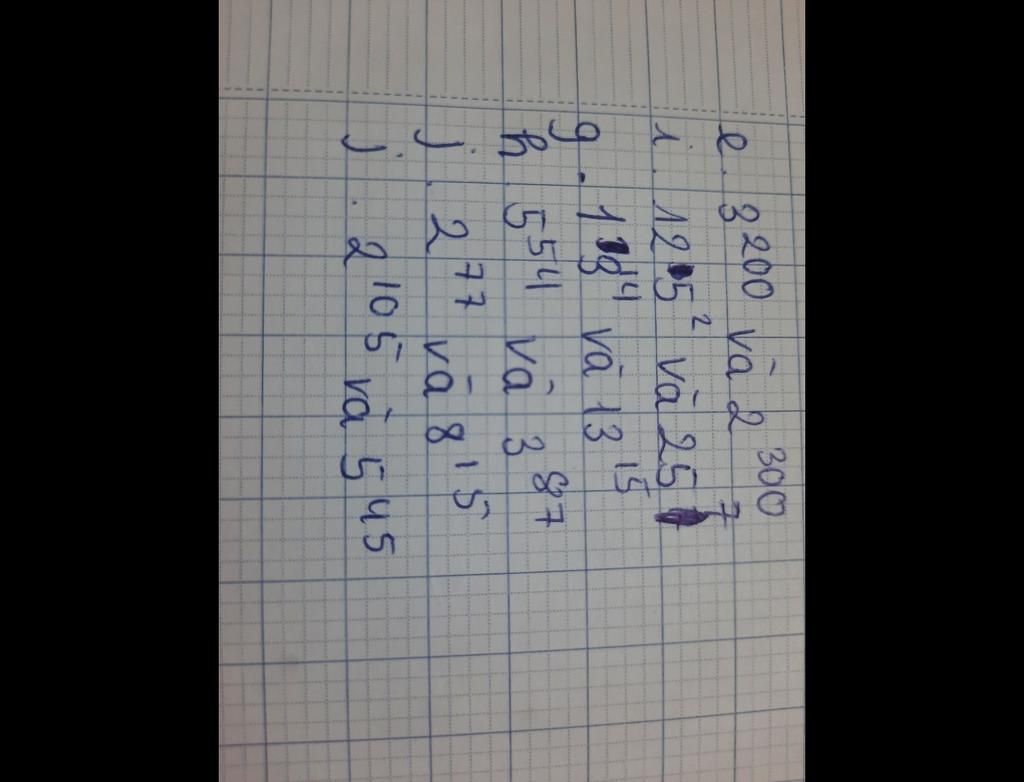 e. 3²⁰⁰ và 2³⁰⁰
i. 125² và 25⁷
g. 18¹⁴ và 13¹⁵
h. 5⁵⁴ và 3⁸⁷
j. 2⁷⁷ và 8¹⁵
j. 2¹⁰⁵ và 5⁴⁵